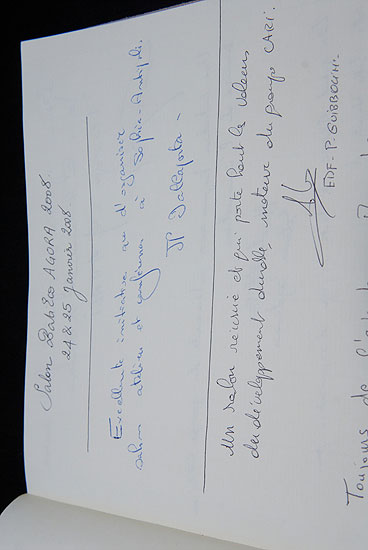 Salon Batiéco AGORA 2008.
24 & 25 Janvier 2008
Excellente initiative que d'organiser
salon atelier et conférences à Sophia-Antipolis.
JP Dallaporta -
Un salon réussi et qui porte haut les valeurs
du développement durable, moteur du groupe CARI.
EDF - P. GUIBBOLINI.
Toujours de l'